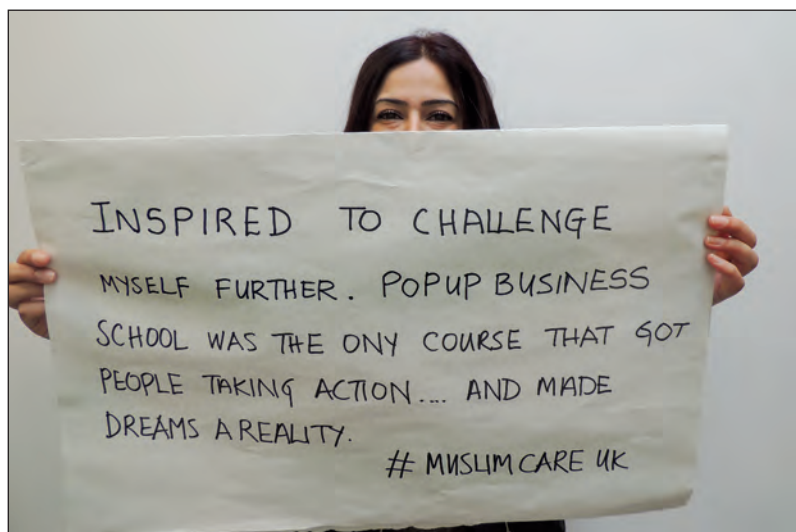 INSPIRED TO CHALLENGE
MYSELF FURTHER. POPUP BUSINESS
SCHOOL WAS THE ONY COURSE THAT GOT
PEOPLE TAKING ACTION.... AND MADE
DREAMS A REALITY.
# MUSLIM CARE UK